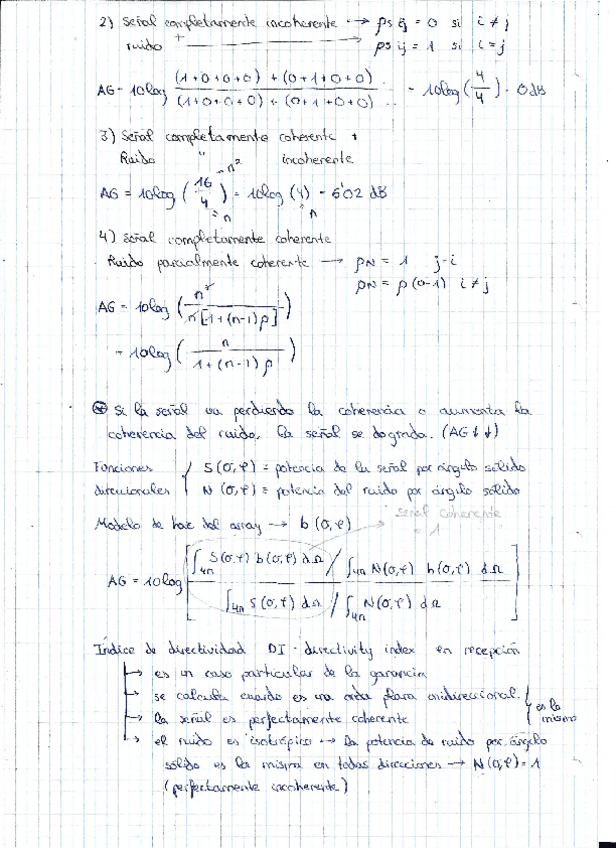 2) Señal completamente incoherente → ρs ij = 0 si i ≠ j
ruido + → ρs ij = 1 si i = j
AG = 10log (1+0+0+0) + (0+1+0+0) .. / (1+0+0+0) + (0+1+0+0) .. = 10log (4/4) = 0dB
3) Señal completamente coherente +
Ruido " incoherente
AG = 10log (16/4) = 10log (4) = 6'02 dB
= n²
= n
= n
4) Señal completamente coherente
Ruido parcialmente coherente → ρN = 1 j=i
ρN = ρ(0-1) i≠j
AG = 10log (n² / n[1+(n-1)ρ])
= 10log (n / 1+(n-1)ρ)
Si la señal va perdiendo la coherencia o aumenta la
coherencia del ruido, la señal se degrada. (AG ↓↓)
Funciones S(σ,φ) = potencia de la señal por ángulo sólido
direccionales N(σ,φ) = potencia del ruido por ángulo sólido
Modelo de haz del array → b(σ,φ)
señal coherente
= 1
AG = 10log [∫4π S(σ,φ) b(σ,φ) dΩ / ∫4π N(σ,φ) b(σ,φ) dΩ
∫4π S(σ,φ) dΩ / ∫4π N(σ,φ) dΩ]
Índice de directividad DI - directivity index en recepción
→ es un caso particular de la ganancia
→ se calcula cuando es una onda plana unidireccional.
→ la señal es perfectamente coherente
es lo mismo
→ el ruido es isotrópico → la potencia de ruido por ángulo
sólido es la misma en todas direcciones → N(σ,φ) = 1
(perfectamente incoherente)